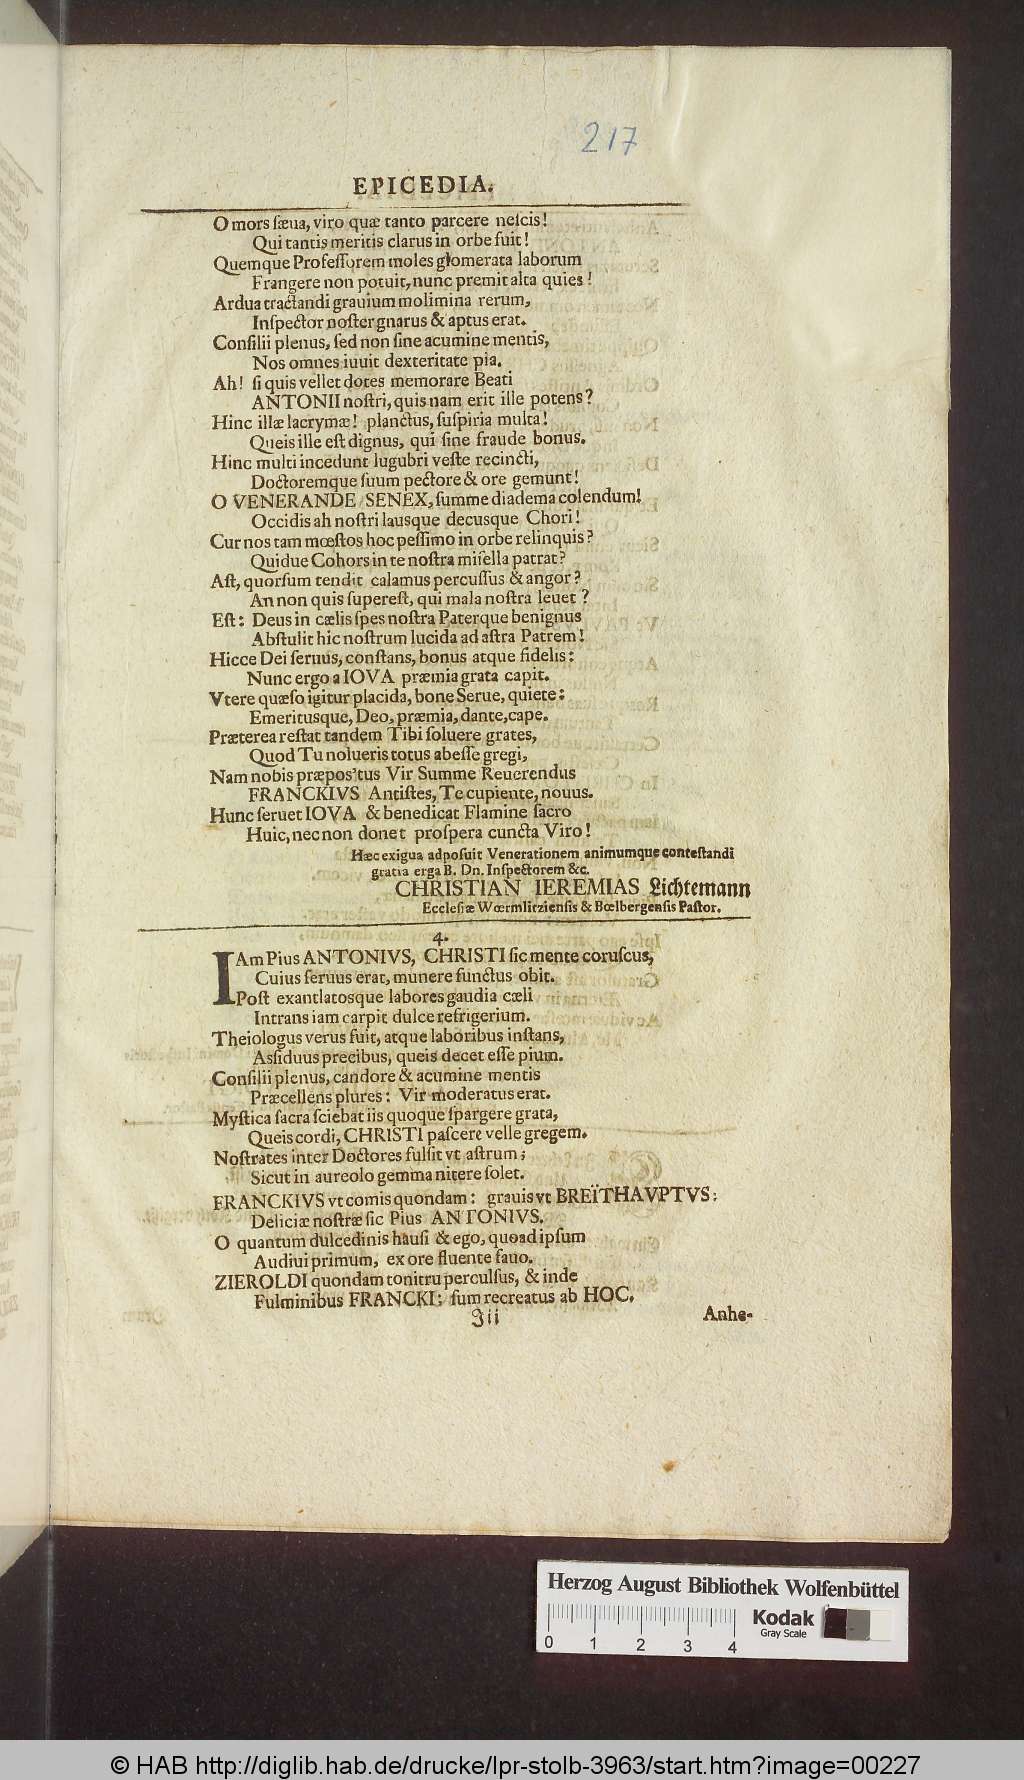 217
EPICEDIA.
O mors ſæua, viro quæ tanto parcere neſcis!
Qui tantis meritis clarus in orbe fuit!
Quemque Profeſſorem moles glomerata laborum
Frangere non potuit, nunc premit alta quies!
Ardua tractandi grauium molimina rerum,
Inſpector noſter gnarus & aptus erat.
Conſilii plenus, ſed non ſine acumine mentis,
Nos omnes iuuit dexteritate pia.
Ah! ſi quis vellet dotes memorare Beati
ANTONII noſtri, quis nam erit ille potens?
Hinc illæ lacrymæ! planctus, ſuſpiria multa!
Queis ille eſt dignus, qui ſine fraude bonus.
Hinc multi incedunt lugubri veſte recincti,
Doctoremque ſuum pectore & ore gemunt!
O VENERANDE SENEX, ſumme diadema colendum!
Occidis ah noſtri lausque decusque Chori!
Cur nos tam mœſtos hoc peſſimo in orbe relinquis?
Quidue Cohors in te noſtra miſella patrat?
Aſt, quorſum tendit calamus percuſſus & angor?
An non quis ſupereſt, qui mala noſtra leuet?
Eſt: Deus in cælis ſpes noſtra Paterque benignus
Abſtulit hic noſtrum lucida ad aſtra Patrem!
Hicce Dei ſeruus, conſtans, bonus atque fidelis:
Nunc ergo a IOVA præmia grata capit.
Vtere quæſo igitur placida, bone Serue, quiete:
Emeritusque, Deo, præmia, dante, cape.
Præterea reſtat tandem Tibi ſoluere grates,
Quod Tu nolueris totus abeſſe gregi,
Nam nobis præpos'tus Vir Summe Reuerendus
FRANCKIVS Antiſtes, Te cupiente, nouus.
Hunc ſeruet IOVA & benedicat Flamine ſacro
Huic, nec non donet proſpera cuncta Viro!
Hæc exigua adpoſuit Venerationem animumque conteſtandi
gratia erga B. Dn. Inſpectorem &c.
CHRISTIAN IEREMIAS Lichtemann
Eccleſiæ Wœrmlitzienſis & Bœlbergenſis Paſtor.
4.
IAm Pius ANTONIVS, CHRISTI ſic mente coruſcus,
Cuius ſeruus erat, munere functus obit.
Poſt exantlatosque labores gaudia cæli
Intrans iam carpit dulce refrigerium.
Theiologus verus fuit, atque laboribus inſtans,
Aſſiduus precibus, queis decet eſſe pium.
Conſilii plenus, candore & acumine mentis
Præcellens plures: Vir moderatus erat.
Myſtica ſacra ſciebat iis quoque ſpargere grata,
Queis cordi, CHRISTI paſcere velle gregem.
Noſtrates inter Doctores fulſit vt aſtrum;
Sicut in aureolo gemma nitere ſolet.
FRANCKIVS vt comis quondam: grauis vt BREÏTHAVPTVS;
Deliciæ noſtræ ſic Pius ANTONIVS.
O quantum dulcedinis hauſi & ego, quoad ipſum
Audiui primum, ex ore fluente fauo.
ZIEROLDI quondam tonitru perculſus, & inde
Fulminibus FRANCKI; ſum recreatus ab HOC.
Jii
Anhe-
Herzog August Bibliothek Wolfenbüttel
0 1 2 3 4
Kodak
Gray Scale
© HAB http://diglib.hab.de/drucke/lpr-stolb-3963/start.htm?image=00227